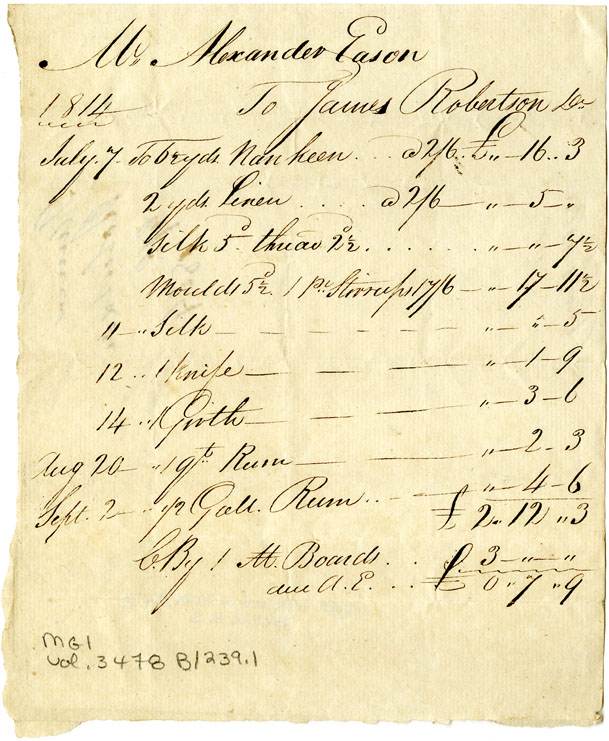 Mr Alexander Eason
1814 To James Robertson Dr
July 7 To 6½ yds Nankeen ... @ 2/6 £ " – 16 .. 3
2 yds Linen .... @ 2/6 – " – 5 – "
Silk 5d thread 2½ ...... " – " – 7½
Moulds 5½ 1 Pr Stirrups 17/6 – " – 17 – 11½
11 – " Silk – – – – " – " – 5
12 .. 1 Knife – – – – " – 1 – 9
14 .. 1 Girth – – – – " – 3 – 6
Aug 20 – " 1 qt Rum – – – " – 2 – 3
Sept. 2 – " 1/2 Gall. Rum .. – " – 4 – 6
£ 2 " 12 " 3
C By 1 M. Boards .. £ 3 – " – "
due A. E. ... £ 0 " 7 " 9
MG1
vol. 3478 B1239.1